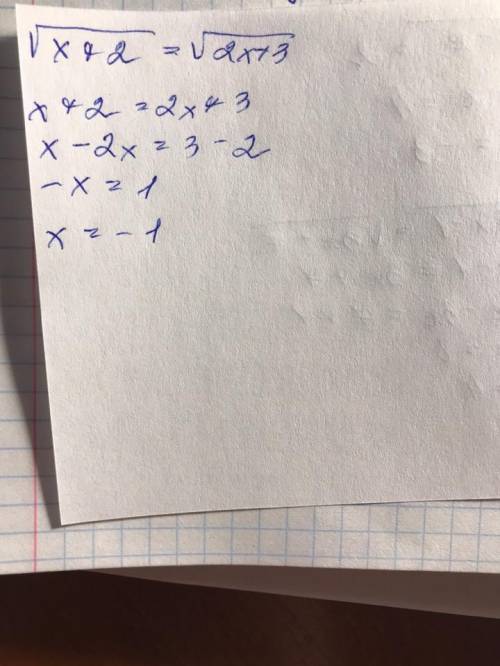 √x+2 = √2x+3
x+2 = 2x+3
x - 2x = 3 - 2
-x = 1
x = -1